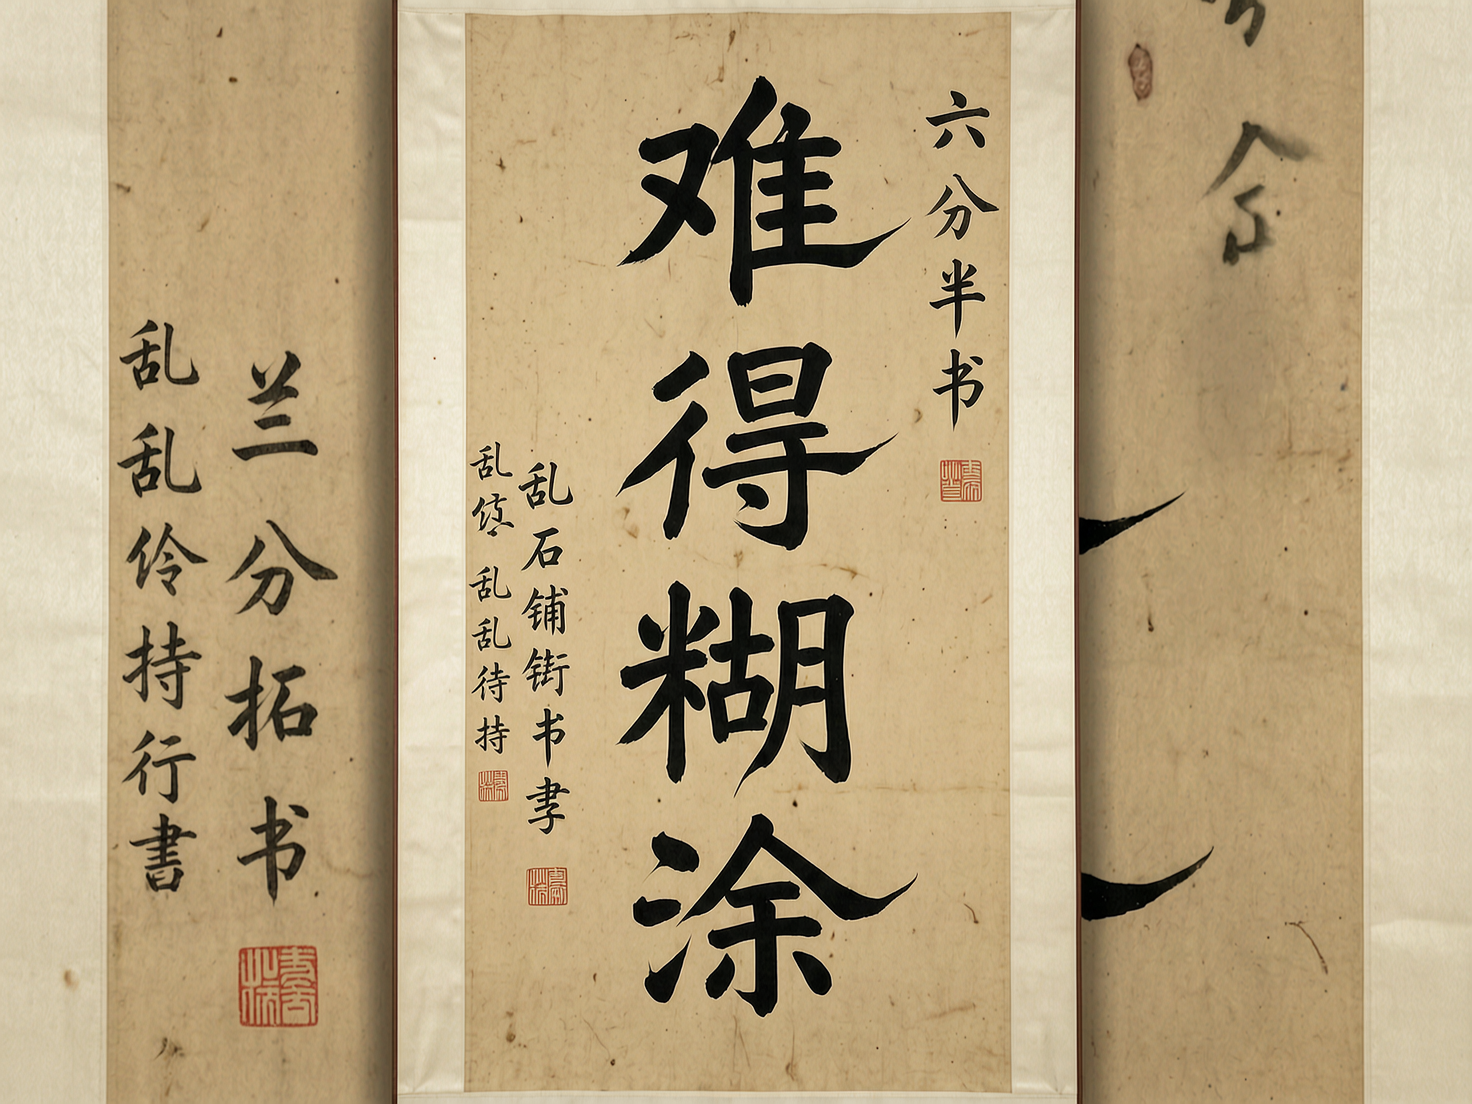 六分半书
难得糊涂
乱石铺街书
乱乱乱待持
兰分拓书
乱乱伶持行書